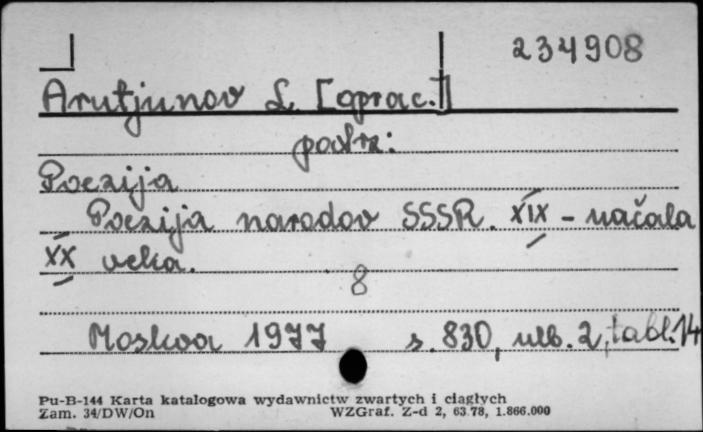 234908
Arutjunov L. [oprac.]
patrz:
Poezija
Poezija narodov SSSR. XIX - načala
XX veka.
8
Moskva 1977 s. 830, nlb. 2, tabl. 14
Pu-B-144 Karta katalogowa wydawnictw zwartych i ciągłych
Zam. 34/DW/On WZGraf. Z-d 2, 63.78, 1.866.000